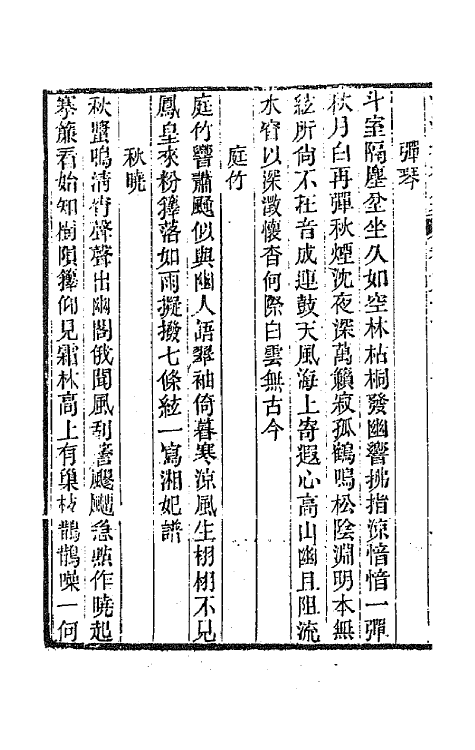 彈琴
斗室隔塵坌坐久如空林枯桐發幽響拂指涼愔愔一彈
秋月白再彈秋煙沈夜深萬籟寂孤鶴鳴松陰淵明本無
絃所尙不在音成連鼓天風海上寄遐心高山幽且阻流
水窅以深澂懷杳何際白雲無古今
庭竹
庭竹響蕭颼似與幽人語翠袖倚暮寒涼風生栩栩不見
鳳皇來粉籜落如雨擬撥七條絃一寫湘妃譜
秋曉
秋蛩鳴淸宵聲聲出幽閣俄聞風刮簷颼颼急點作曉起
搴簾看始知樹隕籜仰見霜林高上有巢枝鵲鵲噪一何